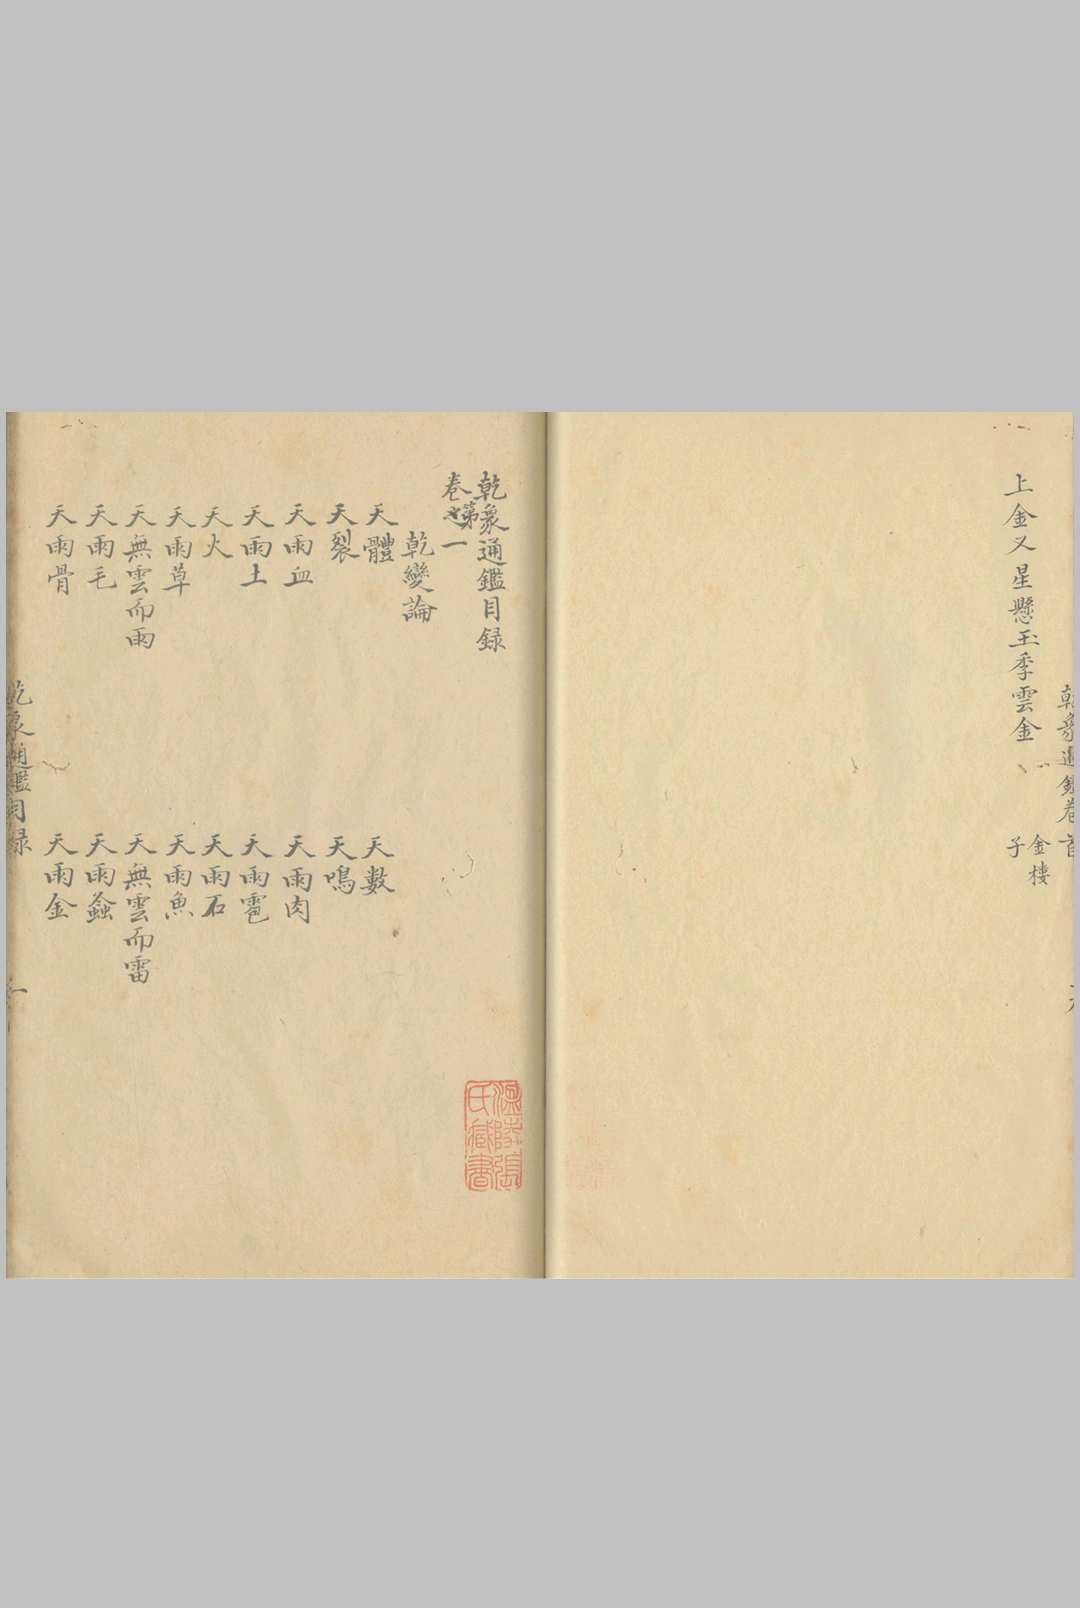 乾象通鑑卷首
上金义星懸玉季雲金
金樓
子
乾象通鑑目録
卷第一
乾變論
天體
天數
天裂
天鳴
天雨血
天雨肉
天雨土
天雨雹
天火
天雨石
天雨草
天雨魚
天無雲而雨
天無雲而雷
天雨毛
天雨螽
天雨骨
天雨金
乾象通鑑目録
一
溫陵張
氏藏書